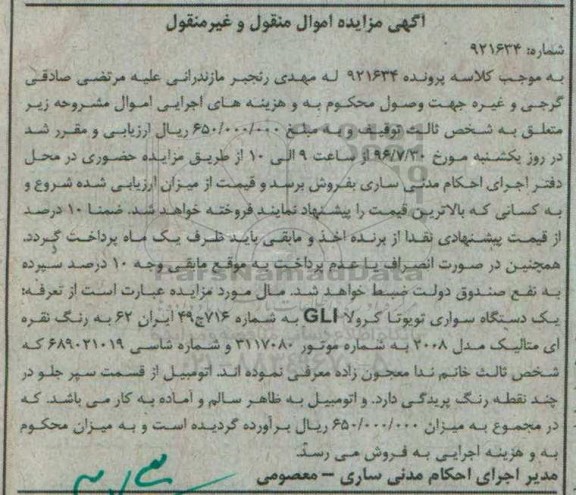 آگهی مزایده اموال منقول و غیرمنقول
شماره: ۹۲۱۶۳۴
به موجب کلاسه پرونده ۹۲۱۶۳۴ له مهدی رنجبر مازندرانی علیه مرتضی صادقی
گرجی و غیره جهت وصول محکوم به و هزینه های اجرایی اموال مشروحه زیر
متعلق به شخص ثالث توقیف و به مبلغ ۶۵۰/۰۰۰/۰۰۰ ریال ارزیابی و مقرر شد
در روز یکشنبه مورخ ۹۶/۷/۳۰ از ساعت ۹ الی ۱۰ از طریق مزایده حضوری در محل
دفتر اجرای احکام مدنی ساری بفروش برسد و قیمت از میزان ارزیابی شده شروع و
به کسانی که بالاترین قیمت را پیشنهاد نمایند فروخته خواهد شد. ضمنا ۱۰ درصد
از قیمت پیشنهادی نقدا از برنده اخذ و مابقی باید ظرف یک ماه پرداخت گردد.
همچنین در صورت انصراف یا عدم پرداخت به موقع مابقی وجه ۱۰ درصد سپرده
به نفع صندوق دولت ضبط خواهد شد. مال مورد مزایده عبارت است از تعرفه:
یک دستگاه سواری تویوتا کرولا GLI به شماره ۷۱۶ج۴۹ ایران ۶۲ به رنگ نقره
ای متالیک مدل ۲۰۰۸ به شماره موتور ۳۱۱۷۰۸۰ و شماره شاسی ۶۸۹۰۲۱۰۱۹ که
شخص ثالث خانم ندا معجون زاده معرفی نموده اند. اتومبیل از قسمت سپر جلو در
چند نقطه رنگ پریدگی دارد. و اتومبیل به ظاهر سالم و آماده به کار می باشد. که
در مجموع به میزان ۶۵۰/۰۰۰/۰۰۰ ریال برآورده گردیده است و به میزان محکوم
به و هزینه اجرایی به فروش می رسد.
مدیر اجرای احکام مدنی ساری – معصومی
ParsNamadData